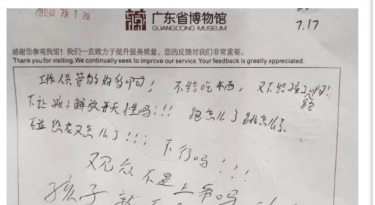 广东省博物馆
GUANGDONG MUSEUM
7.17
感谢您参观我馆！我们一直致力于提升服务质量，您的反馈对我们非常重要。
Thank you for visiting. We continually seek to improve our service. Your feedback is greatly appreciated.
工作人员管的好多啊！不给吃东西，又不给孩子跑！
不让孩子解放天性吗！！！跑怎么了跳怎么了
碰热老又怎么了！！！不行吗！！！
观众不是上帝吗
孩子就